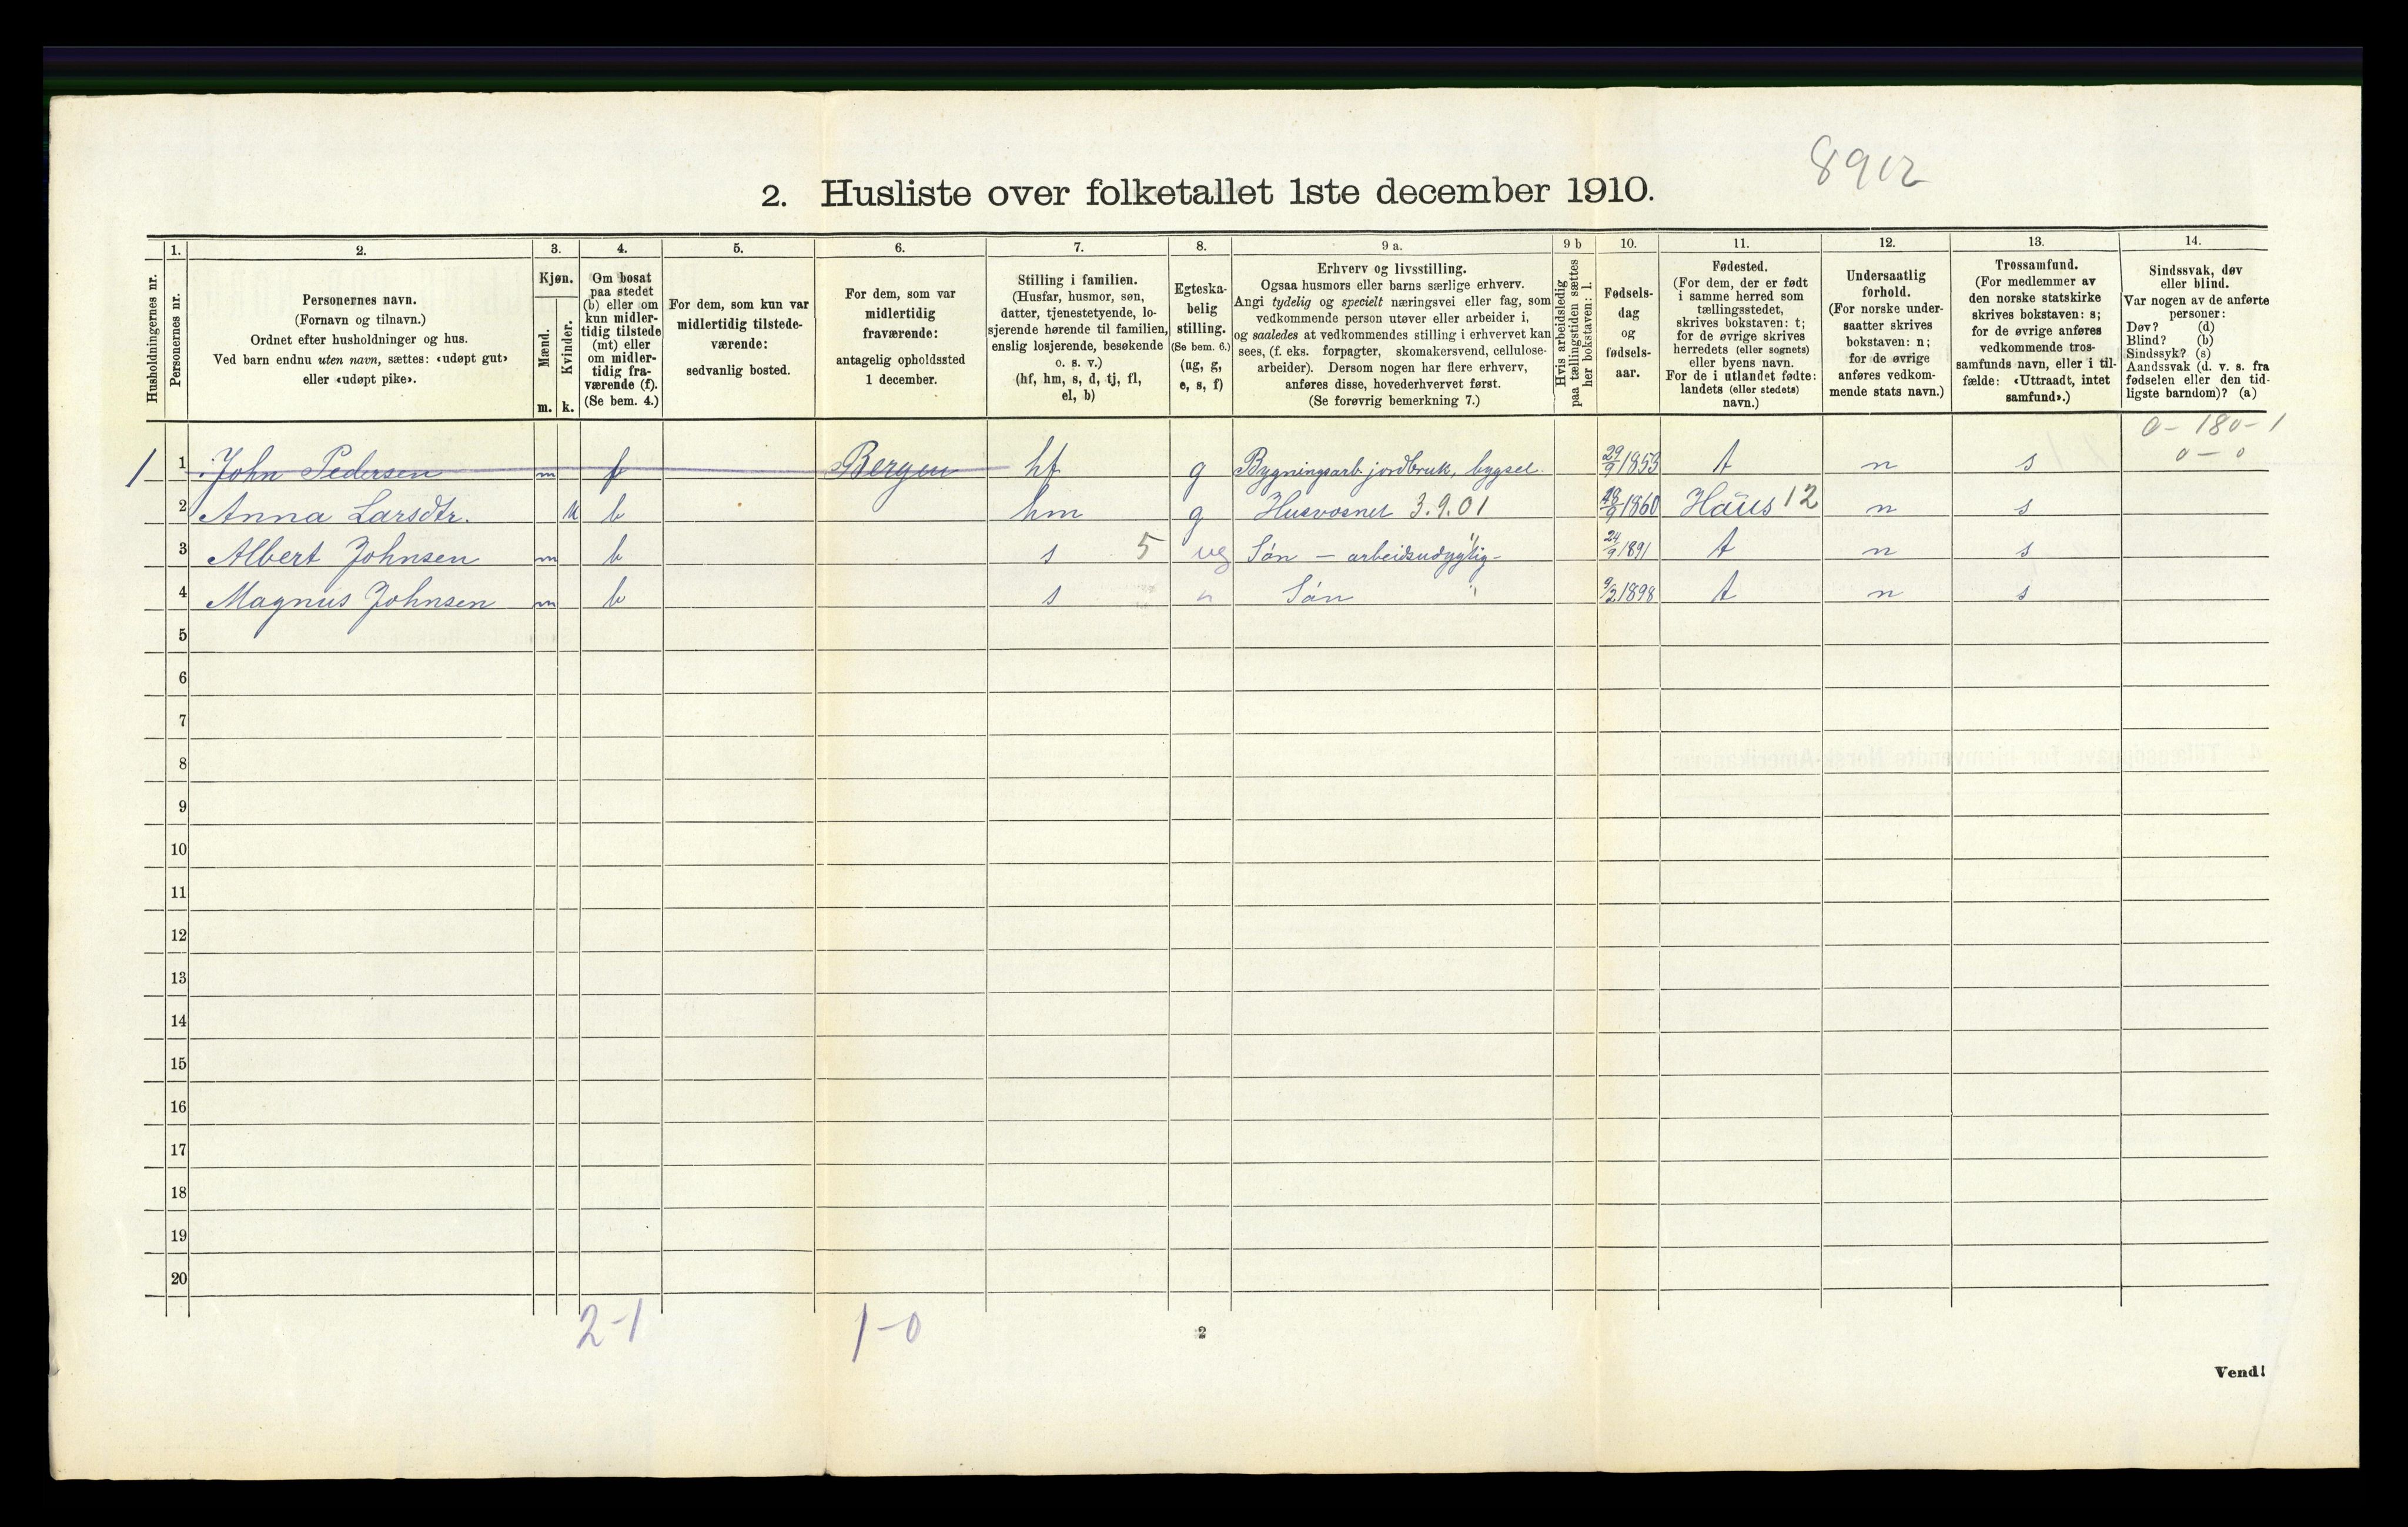 8912
2. Husliste over folketallet 1ste december 1910.
Husholdningernes nr.
1.
Personernes nr.
2.
Personernes navn.
(Fornavn og tilnavn.)
Ordnet efter husholdninger og hus.
Ved barn endnu uten navn, sættes: «udøpt gut»
eller «udøpt pike».
3.
Kjøn.
Mænd.
Kvinder.
m. k.
4.
Om bosat
paa stedet
(b) eller om
kun midler-
tidig tilstede
(mt) eller
om midler-
tidig fra-
værende (f).
(Se bem. 4.)
5.
For dem, som kun var
midlertidig tilstede-
værende:
sedvanlig bosted.
6.
For dem, som var
midlertidig
fraværende:
antagelig opholdssted
1 december.
7.
Stilling i familien.
(Husfar, husmor, søn,
datter, tjenestetyende, lo-
sjerende hørende til familien,
enslig losjerende, besøkende
o. s. v.)
(hf, hm, s, d, tj, fl,
el, b)
8.
Egteska-
belig
stilling.
(Se bem. 6.)
(ug, g,
e, s, f)
9 a.
Erhverv og livsstilling.
Ogsaa husmors eller barns særlige erhverv.
Angi tydelig og specielt næringsvei eller fag, som
vedkommende person utøver eller arbeider i,
og saaledes at vedkommendes stilling i erhvervet kan
sees, (f. eks. forpagter, skomakersvend, cellulose-
arbeider). Dersom nogen har flere erhverv,
anføres disse, hovederhvervet først.
(Se forøvrig bemerkning 7.)
9 b
Hvis arbeidsledig
paa tællingstiden sættes
her bokstaven: l.
10.
Fødsels-
dag
og
fødsels-
aar.
11.
Fødested.
(For dem, der er født
i samme herred som
tællingsstedet,
skrives bokstaven: t;
for de øvrige skrives
herredets (eller sognets)
eller byens navn.
For de i utlandet fødte:
landets (eller stedets)
navn.)
12.
Undersaatlig
forhold.
(For norske under-
saatter skrives
bokstaven: n;
for de øvrige
anføres vedkom-
mende stats navn.)
13.
Trossamfund.
(For medlemmer av
den norske statskirke
skrives bokstaven: s;
for de øvrige anføres
vedkommende tros-
samfunds navn, eller i til-
fælde: «Uttraadt, intet
samfund».)
14.
Sindssvak, døv
eller blind.
Var nogen av de anførte
personer:
Døv? (d)
Blind? (b)
Sindssyk? (s)
Aandssvak (d. v. s. fra
fødselen eller den tid-
ligste barndom)? (a)
0 - 180 - 1
0 - 0
1 1 John Pedersen m f Bergen hf g Bygningsarb jordbruk, bygsel. 29/9 1853 t n s
2 Anna Larsdtr. k b hm g 3.9.01 18/9 1860 Haus 12 n s
3 Albert Johnsen m b s 5 ug Søn - arbeidsudygtig - 24/9 1891 t n s
4 Magnus Johnsen m b s " Søn " 9/2 1898 t n s
5
6
7
8
9
10
11
12
13
14
15
16
17
18
19
20
2-1 1-0
2
Vend!